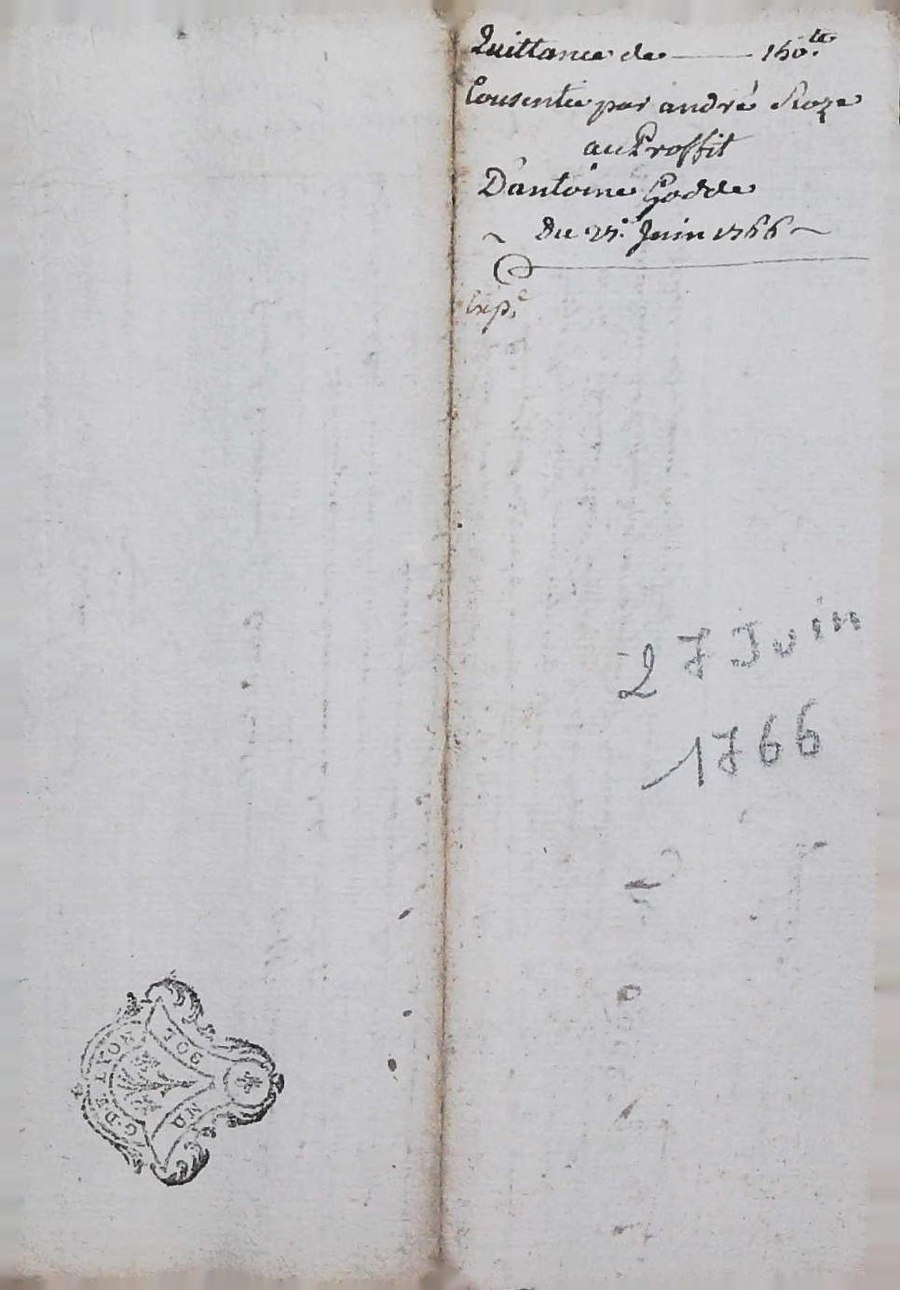 Quittance de 150.lt
Consentie par andré Roze
au Proffit
D'antoine Godde
Du 27.e Juin 1766
Exp.e
27 Juin
1766
G. DE LYON